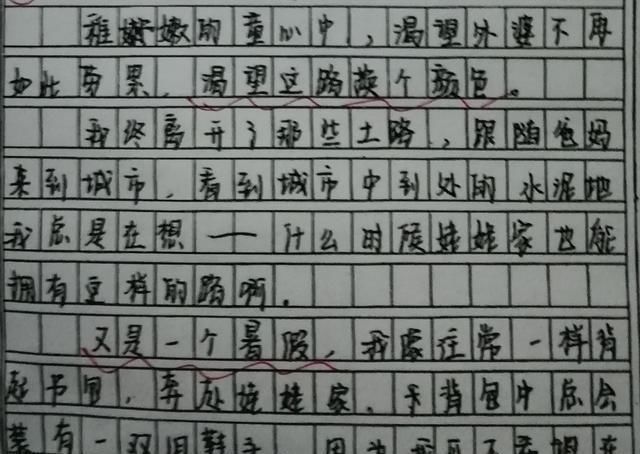 稚嫩的童心中，渴望外婆不再
如此劳累，渴望这路换个颜色。
我终离开了那些土路，跟随爸妈
来到城市，看到城市中到处的水泥地
我总是在想——什么时候娃娃家也能
拥有这样的路啊。
又是一个暑假，我像往常一样背
起书包，奔赴娃娃家，背包中总会
装有一双旧鞋子，因为我再不